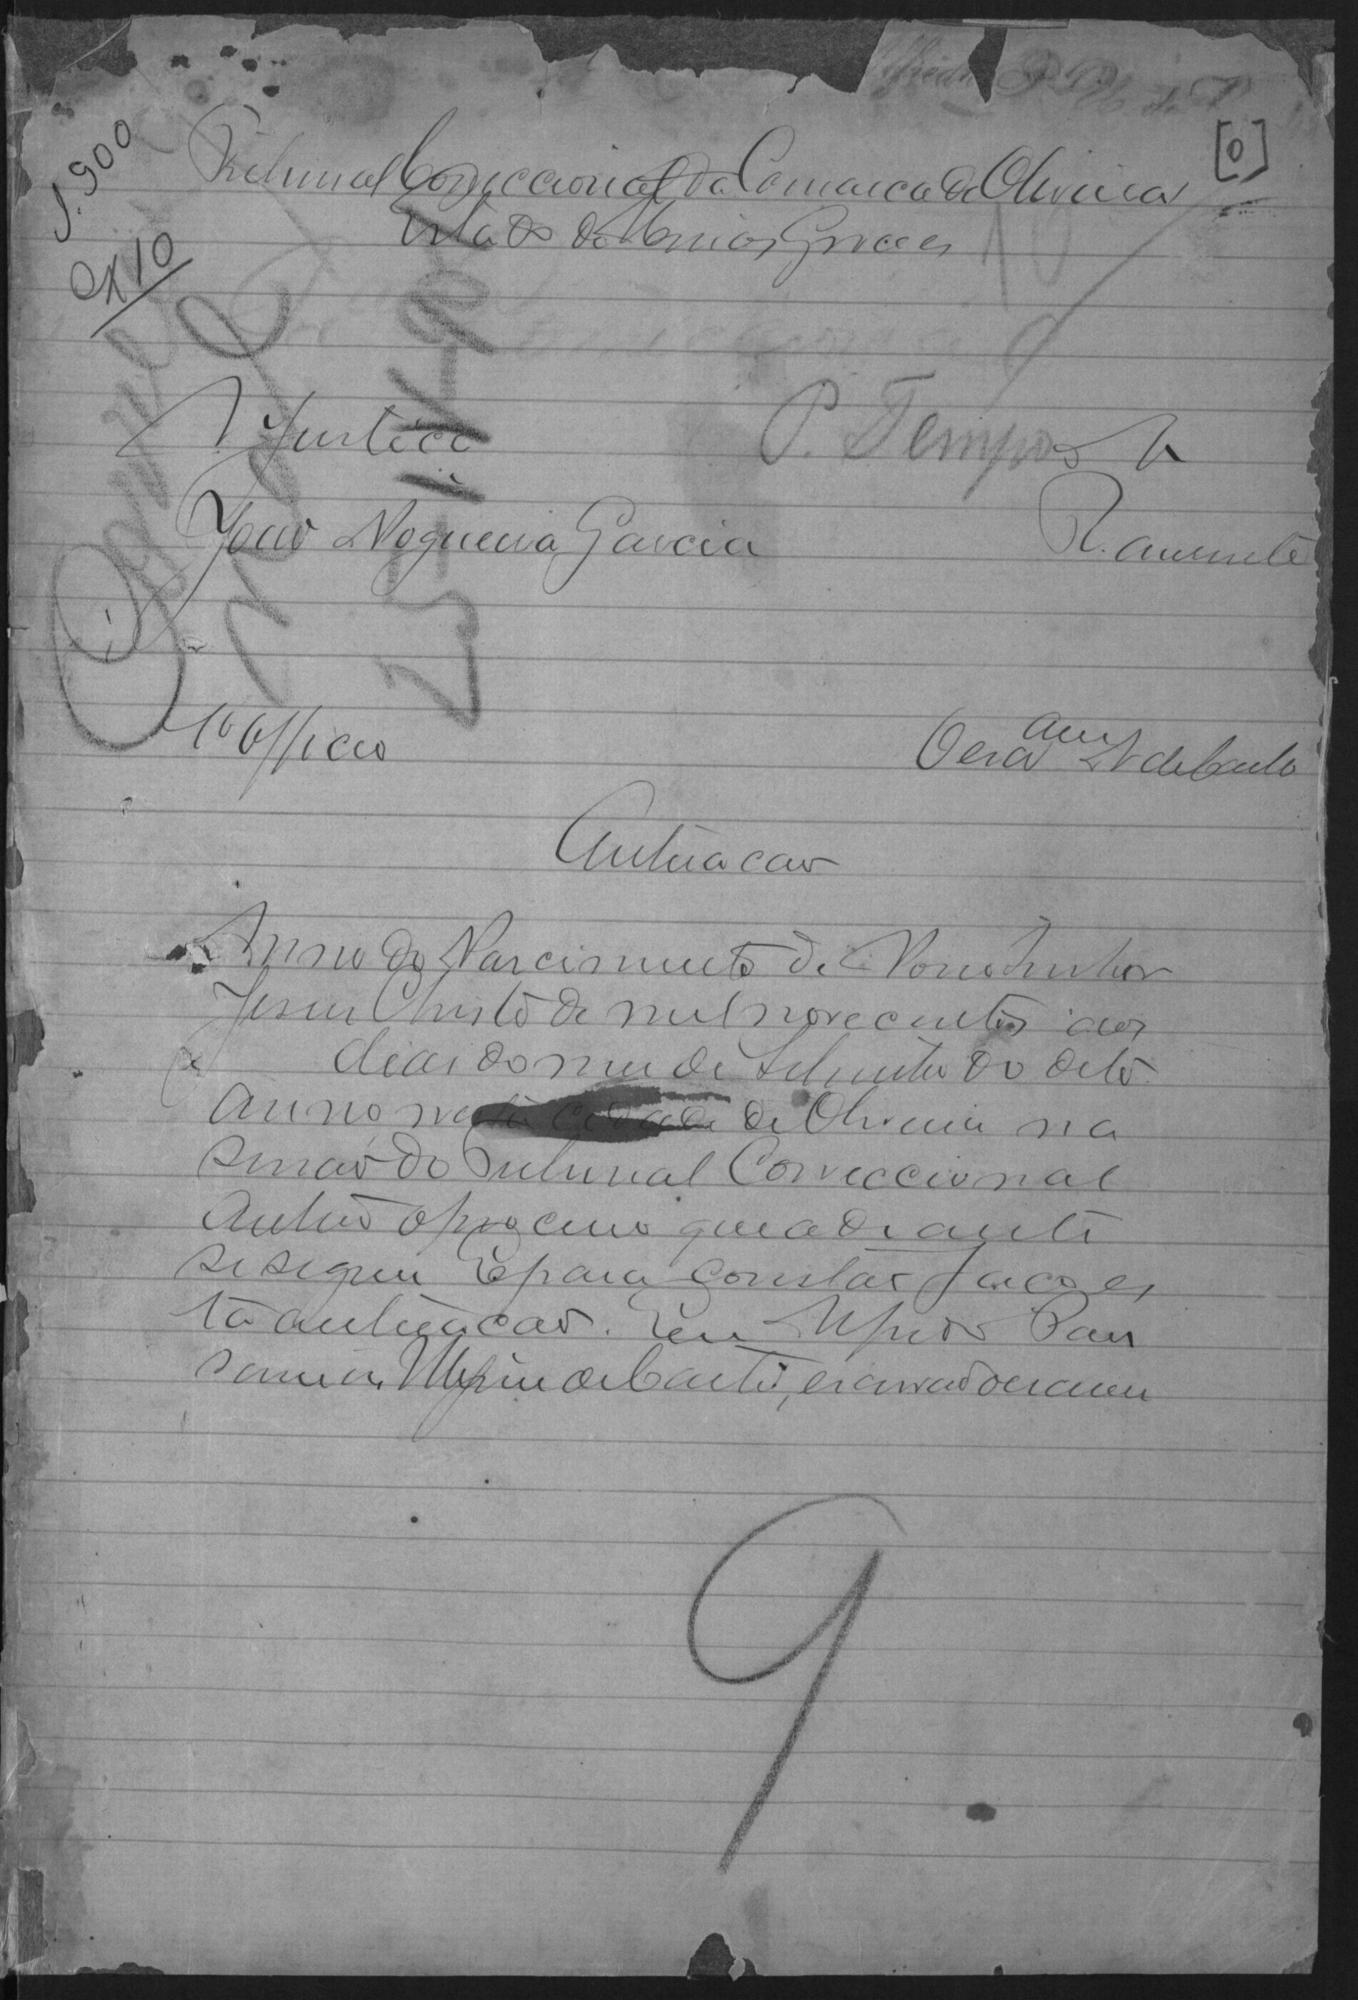 [0]
1.900
cx 10
Tribunal Correccional da Comarca de Oliveira
Estado de Minas Geraes
A Justiça
A
P. Tempo
João Nogueira Garcia
R. ausente
25-11-905
1º Officio
Autuacao
Anno do Nascimento de Nosso Senhor
Jesus Christo de mil novecentos aos
dias do mes de Setembro do dito
anno nesta cidade de Oliveira na
sessão do Tribunal Correccional
autuo o processo que adiante
se segue E para constar faço es
ta autuacao. Eu Alfredo Pau
de Castro, escrivão o escrevi
9